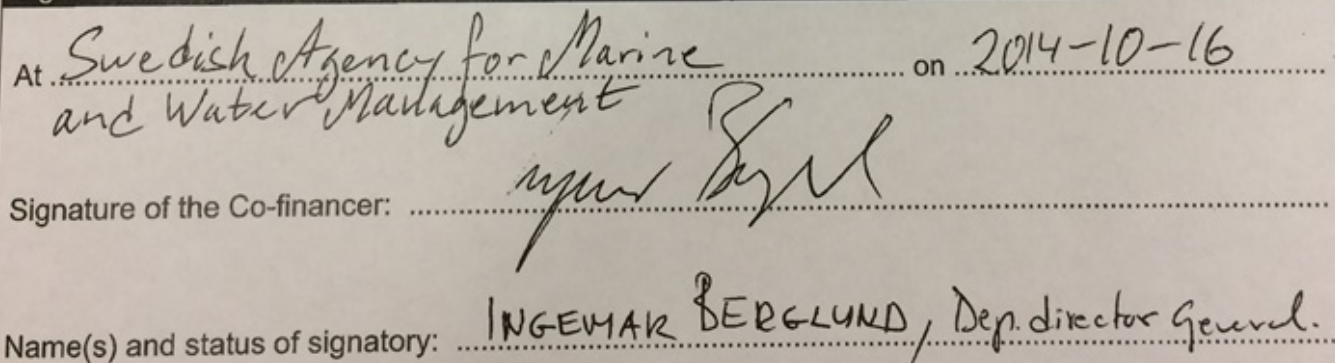 At Swedish Agency for Marine on 2014-10-16
and Water Management
Signature of the Co-financer:
Name(s) and status of signatory: INGEMAR BERGLUND, Dep. director General.